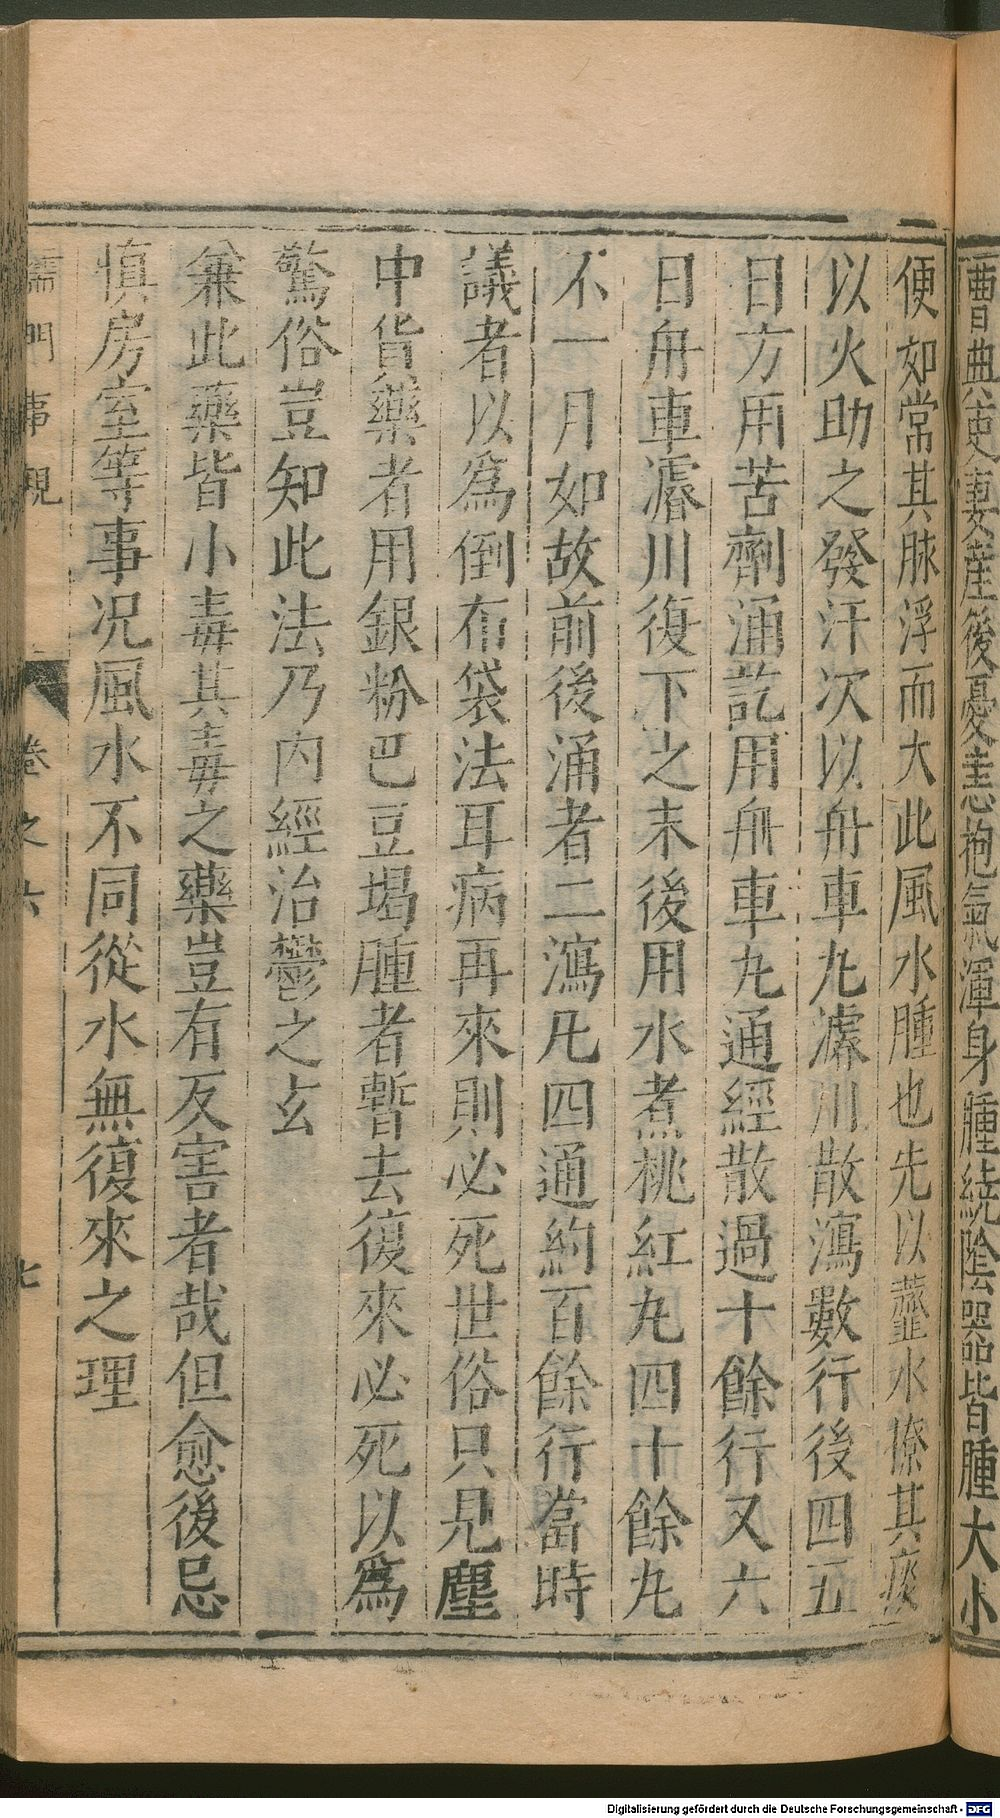 曹典使妻産後憂恚抱氣渾身腫繞陰器皆腫大小
便如常其脉浮而大此風水腫也先以虀水撩其痰
以火助之發汗次以舟車丸濬川散瀉數行後四五
日方用苦劑涌訖用舟車丸通經散過十餘行又六
日舟車濬川復下之末後用水煮桃紅丸四十餘丸
不一月如故前後涌者二瀉凡四通約百餘行當時
議者以爲倒布袋法耳病再來則必死世俗只見塵
中貨藥者用銀粉巴豆堨腫者暫去復來必死以爲
驚俗豈知此法乃内經治鬱之玄
兼此藥皆小毒其毒之藥豈有反害者哉但愈後忌
慎房室等事况風水不同從水無復來之理
儒門事親 卷之六 七
Digitalisierung gefördert durch die Deutsche Forschungsgemeinschaft - DFG